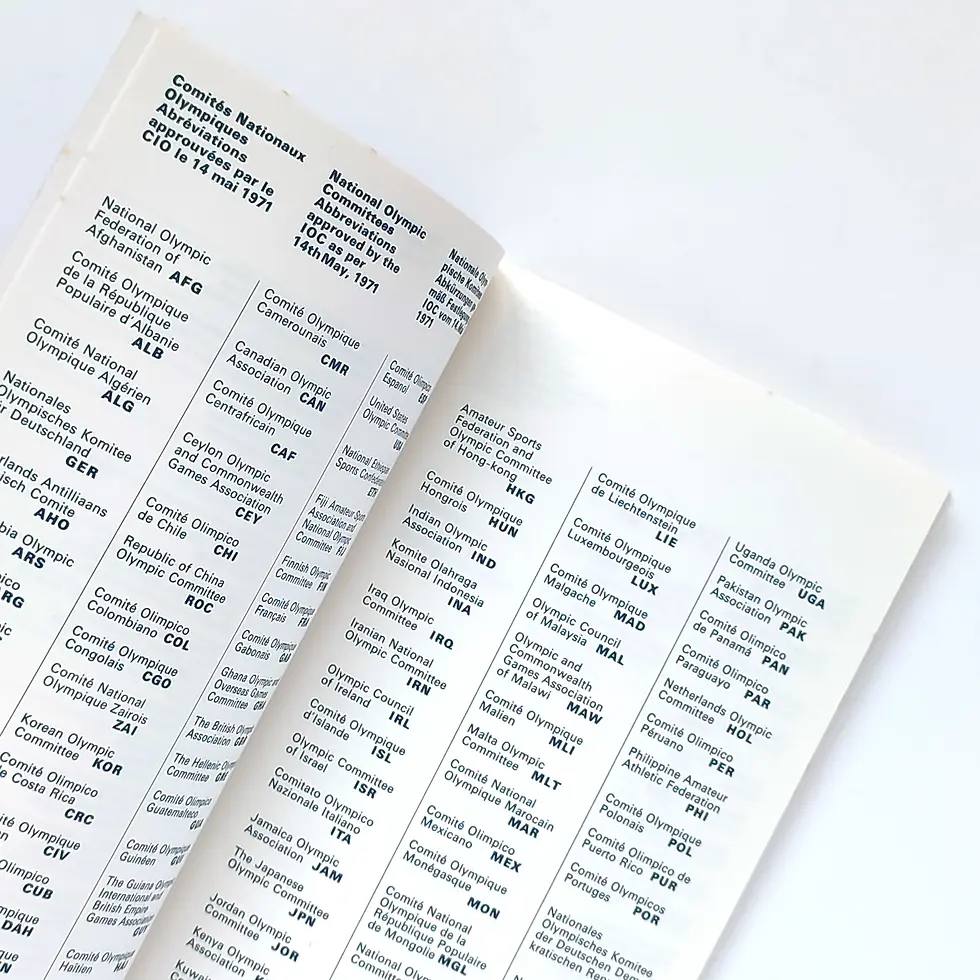 Comités Nationaux
Olympiques
Abréviations
approuvées par le
CIO le 14 mai 1971
National Olympic
Committees
Abbreviations
approved by the
IOC as per
14th May, 1971
Nationale
Abkürzungen
IOC vom
1971
National Olympic
Federation of
Afghanistan AFG
Comité Olympique
de la République
Populaire d'Albanie
ALB
Comité National
Olympique Algérien
ALG
Nationales
Olympisches Komitee
Deutschland
GER
Antilliaans
Comite
AHO
Olympic
ARS
Comité Olympique
Camerounais
CMR
Canadian Olympic
Association CAN
Comité Olympique
Centrafricain
CAF
Ceylon Olympic
and Commonwealth
Games Association
CEY
Comité Olimpico
de Chile CHI
Republic of China
Olympic Committee
ROC
Comité Olimpico
Colombiano COL
Comité Olympique
Congolais CGO
Comité National
Olympique Zaïrois
ZAI
Korean Olympic
Committee KOR
Comité Olimpico
Costa Rica
CRC
Olympique
CIV
Olimpico
CUB
DAH
Comité
Espanol
United States
Olympic
National
Sports
Fiji Amateur
Association and
National
Committee
Finnish
Committee
Comité
Français
Comité
Gabonais
Ghana
Overseas
The British
Association
The Hellenic
Committee
Comité Olimpico
Guatemalteco
Comité
Guinéen
The Guiana
International and
British Empire
Games
Comité
Haïtien
Amateur Sports
Federation and
Olympic Committee
of Hong-kong
HKG
Comité Olympique
Hongrois HUN
Indian Olympic
Association IND
Komite Olahraga
Nasional Indonesia
INA
Iraq Olympic
Committee IRQ
Iranian National
Olympic Committee
IRN
Olympic Council
of Ireland IRL
Comité Olympique
d'Islande ISL
Olympic Committee
of Israel ISR
Comitato Olympico
Nazionale Italiano
ITA
Jamaica Olympic
Association JAM
The Japanese
Olympic Committee
JPN
Jordan Olympic
Committee JOR
Kenya Olympic
Association
Comité Olympique
de Liechtenstein
LIE
Comité Olympique
Luxembourgeois
LUX
Comité Olympique
Malgache MAD
Olympic Council
of Malaysia MAL
Olympic and
Commonwealth
Games Association
of Malawi MAW
Comité Olympique
Malien MLI
Malta Olympic
Committee MLT
Comité National
Olympique Marocain
MAR
Comité Olimpico
Mexicano MEX
Comité Olympique
Monégasque
MON
Comité National
Olympique de la
République Populaire
de Mongolie MGL
National
Uganda Olympic
Committee UGA
Pakistan Olympic
Association PAK
Comité Olimpico
de Panamá PAN
Comité Olimpico
Paraguayo PAR
Netherlands Olympic
Committee HOL
Comité Olimpico
Péruano PER
Philippine Amateur
Athletic Federation
PHI
Comité Olympique
Polonais POL
Comité Olimpico de
Puerto Rico PUR
Comité Olympicos
Portuges POR
Nationales
Olympisches Komitee
der Deutschen